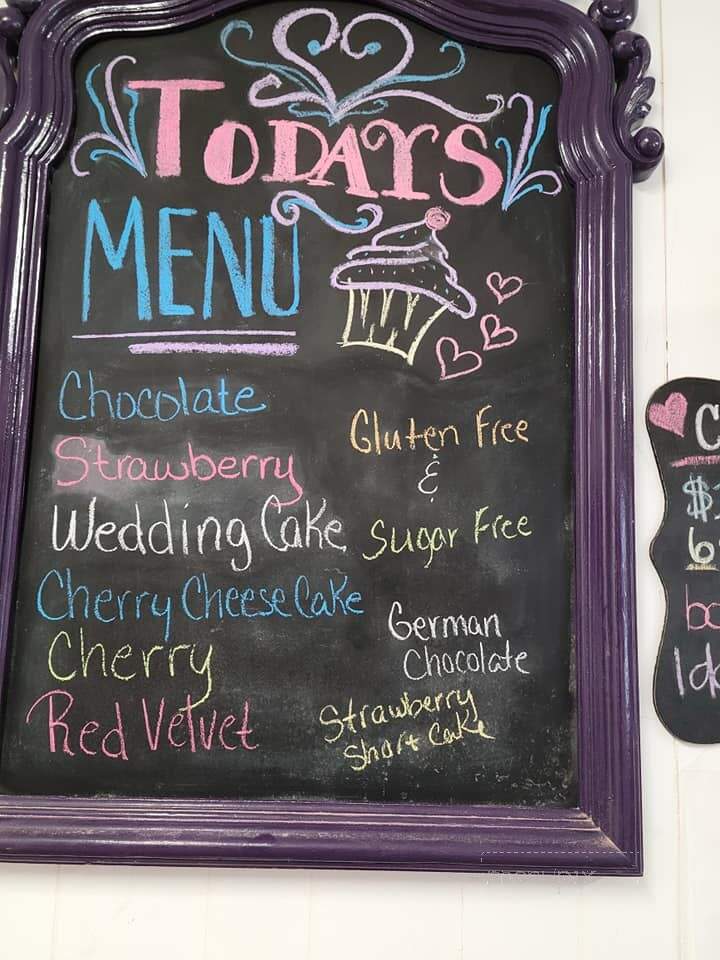 TODAYS
MENU
Chocolate
Strawberry
Wedding Cake
Cherry CheeseCake
Cherry
Red Velvet
Gluten Free
&
Sugar Free
German
Chocolate
Strawberry
Short Cake
C
$
6